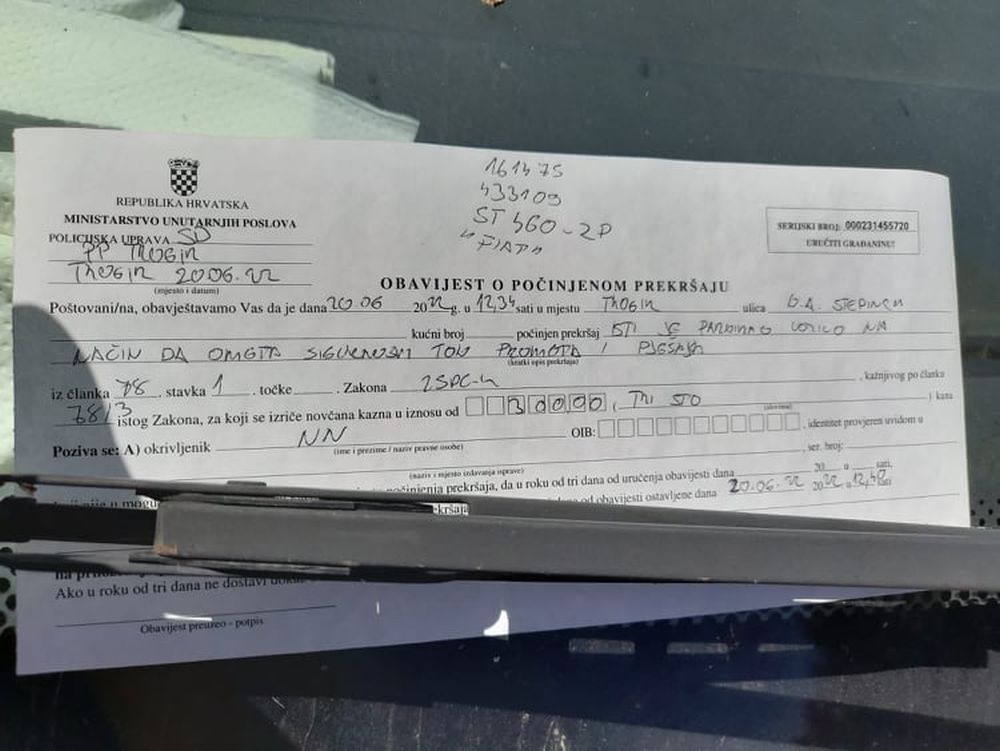 REPUBLIKA HRVATSKA
MINISTARSTVO UNUTARNJIH POSLOVA
POLICIJSKA UPRAVA SD
PP TROGIR
TROGIR 20.06.22
(mjesto i datum)
161475
433109
ST 460-ZP
"FIAT"
SERIJSKI BROJ: 000231455720
URUČITI GRAĐANINU!
OBAVIJEST O POČINJENOM PREKRŠAJU
Poštovani/na, obavještavamo Vas da je dana 20.06 2022 g. u 12,34 sati u mjestu TROGIR ulica
kućni broj počinjen prekršaj STI JE PARKIRAO VOZILO NA
NAČIN DA OMETA SIGURNOSAN TOK PROMETA I PJEŠAKA
(kratki opis prekršaja)
iz članka 78, stavka 1, točke Zakona ZSPC-u, kažnjivog po članku
78/3 istog Zakona, za koji se izriče novčana kazna u iznosu od 30000, TRI STO ) kuna
Poziva se: A) okrivljenik NN OIB: , identitet provjeren uvidom u
(ime i prezime / naziv pravne osobe)
, ser. broj:
(naziv i mjesto izdavanja isprave)
počinjenja prekršaja, da u roku od tri dana od uručenja obavijesti dana 20 u sati,
od obavijesti ostavljene dana 20.06.22 2022 u
ekršaja
Ako u roku od tri dana ne dostavi
Obavijest preuzeo - potpis